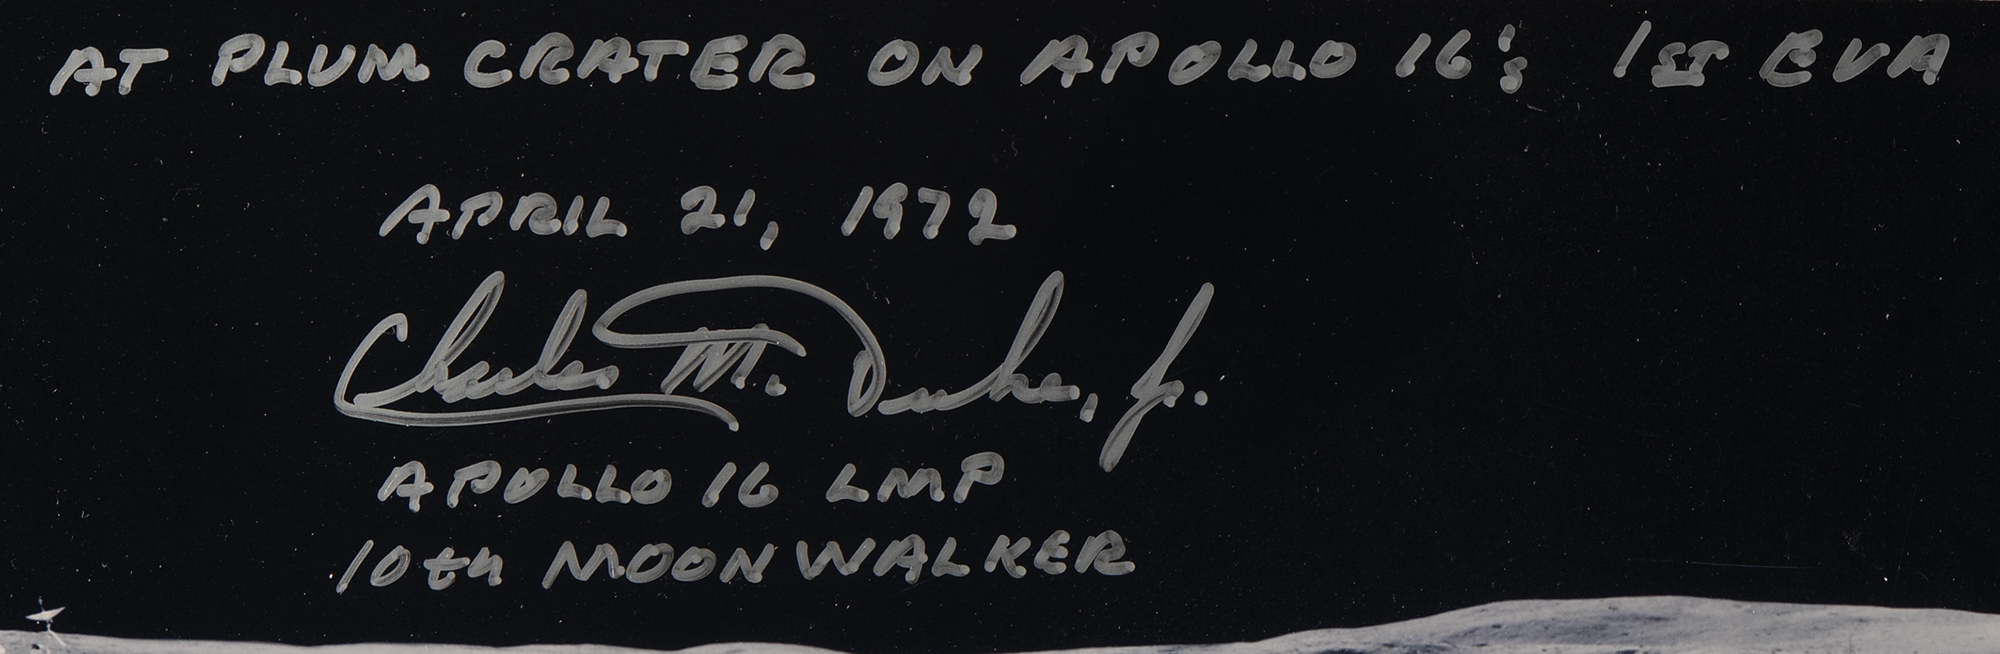 AT PLUM CRATER ON APOLLO 16's 1ST EVA
APRIL 21, 1972
Charles M. Duke, Jr.
APOLLO 16 LMP
10th MOONWALKER